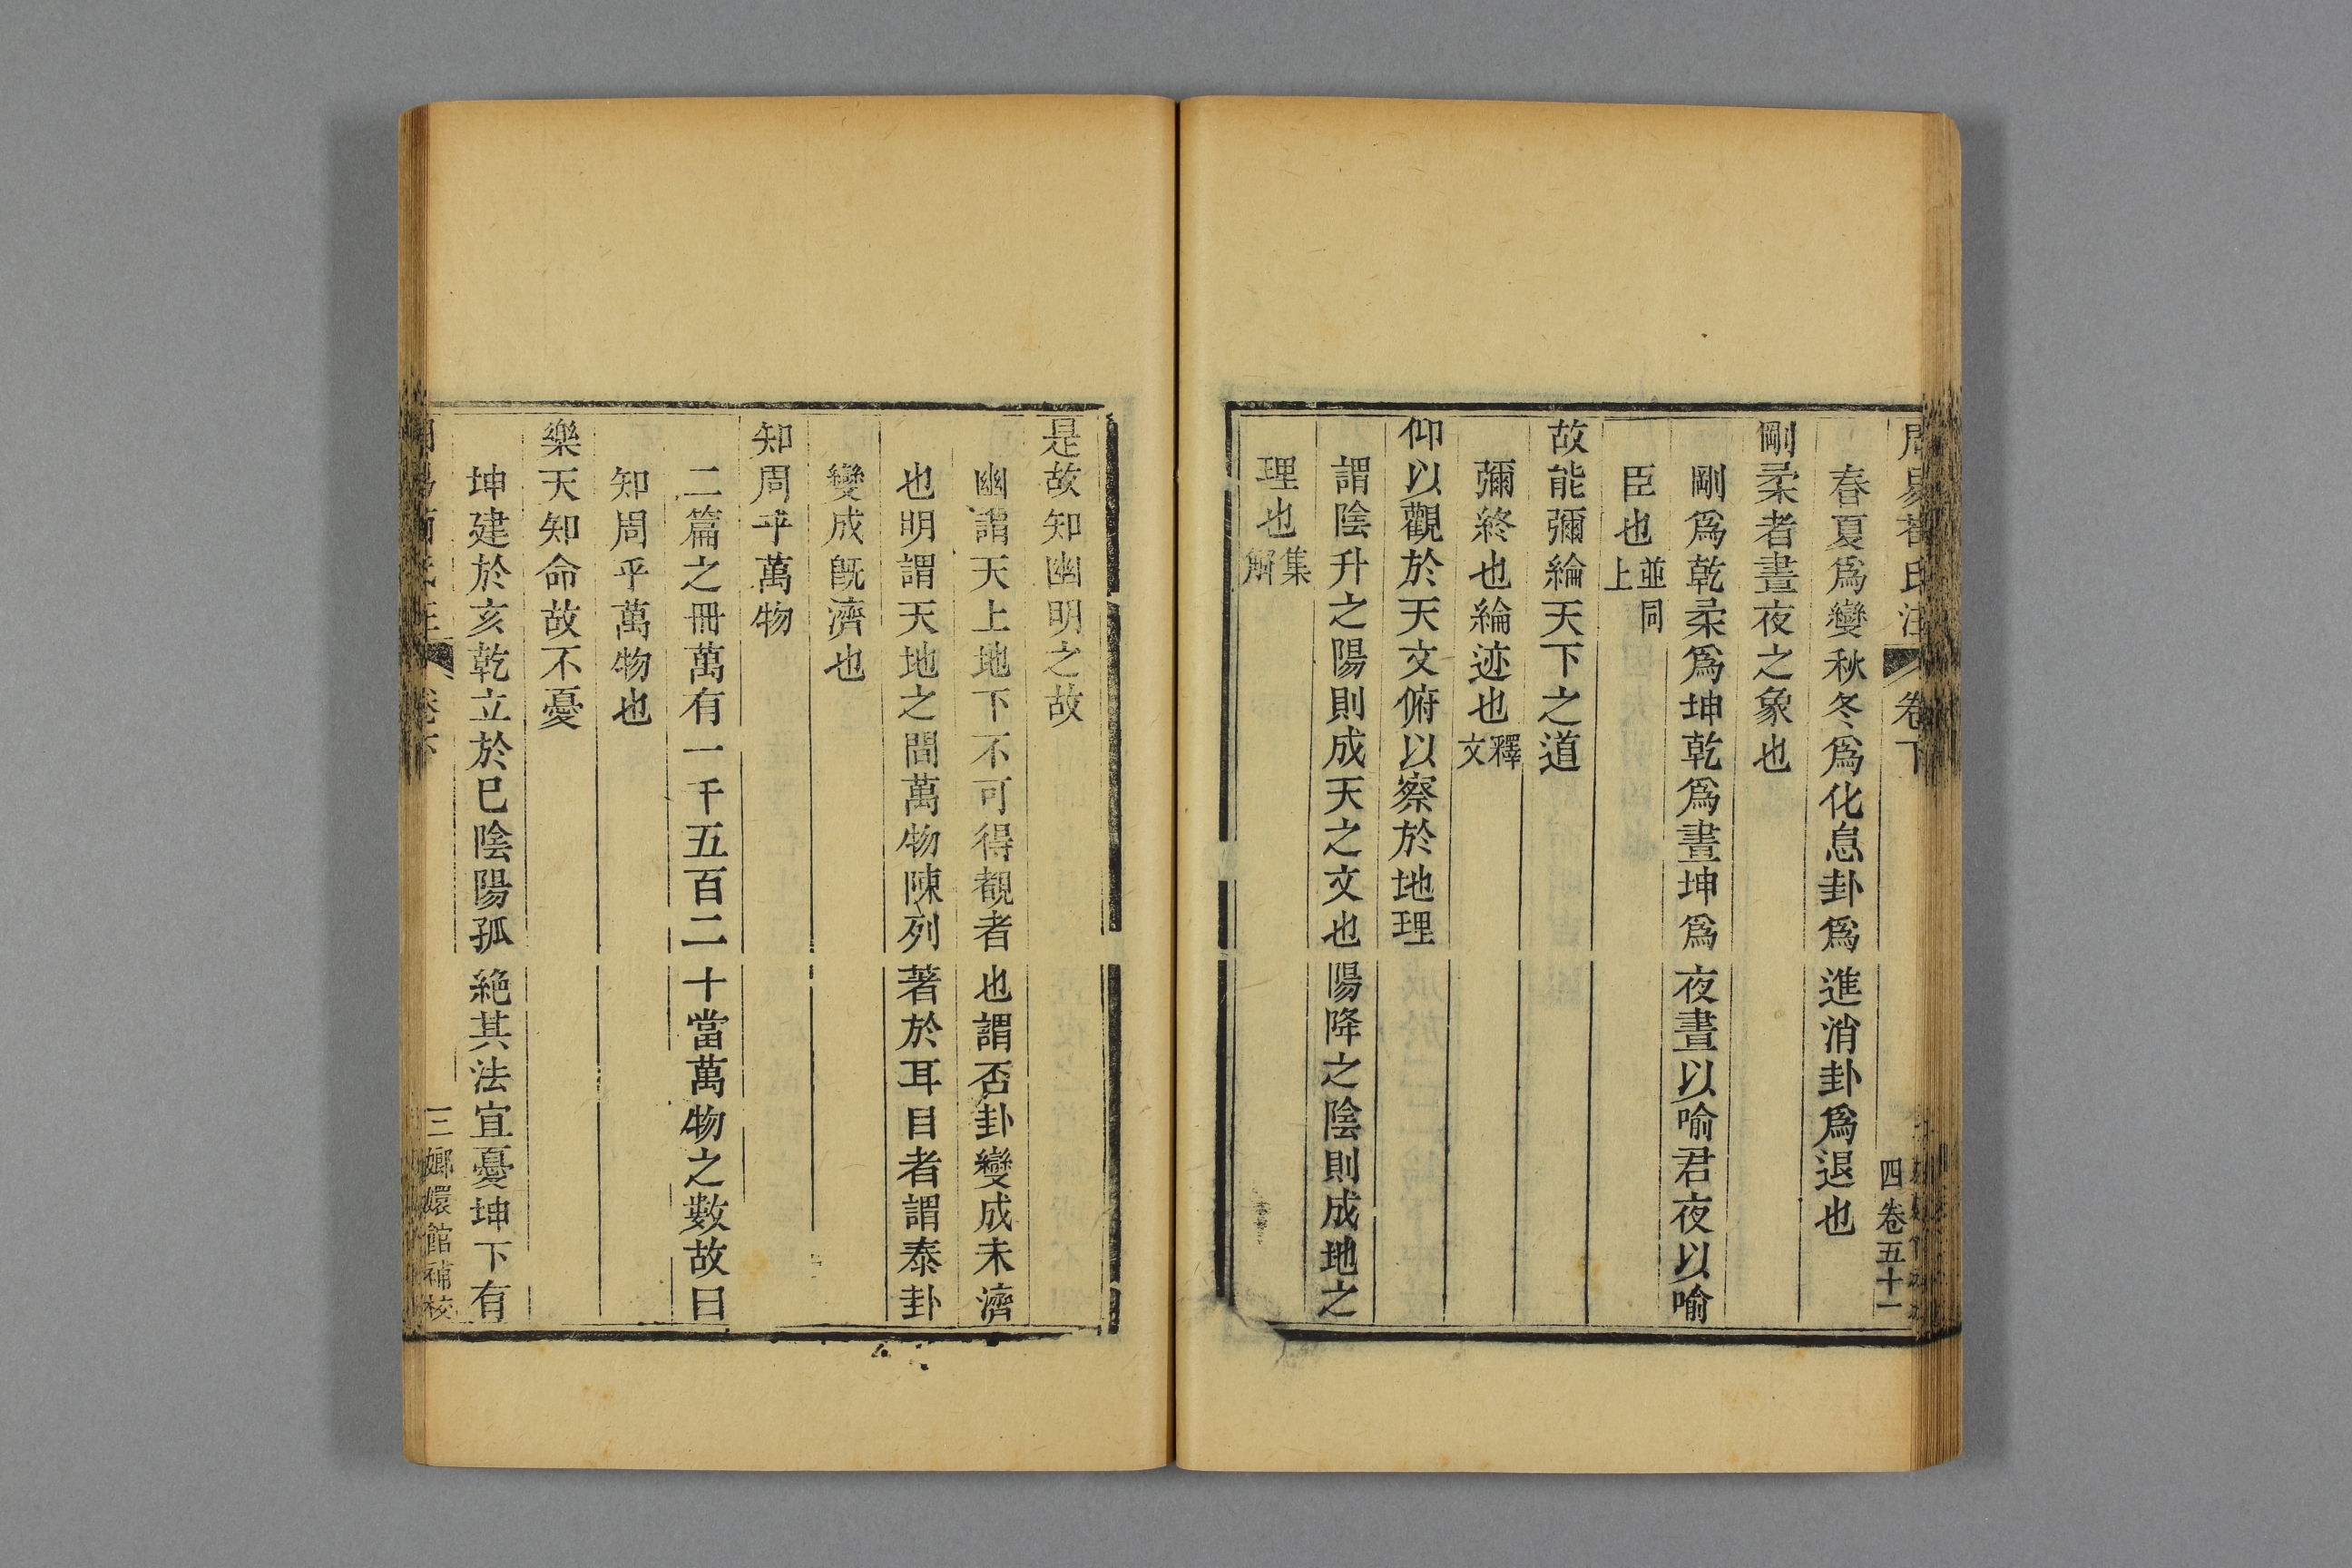 周易荀氏注 卷下
四卷五十一
春夏爲變秋冬爲化息卦爲進消卦爲退也
剛柔者晝夜之象也
剛爲乾柔爲坤乾爲晝坤爲夜晝以喻君夜以喻
臣也並同上
故能彌綸天下之道
彌終也綸迹也釋文
仰以觀於天文俯以察於地理
謂陰升之陽則成天之文也陽降之陰則成地之
理也集解
是故知幽明之故
幽謂天上地下不可得覩者也謂否卦變成未濟
也明謂天地之間萬物陳列著於耳目者謂泰卦
變成旣濟也
知周乎萬物
二篇之冊萬有一千五百二十當萬物之數故曰
知周乎萬物也
樂天知命故不憂
坤建於亥乾立於巳陰陽孤絶其法宜憂坤下有
卷下
三 嫏嬛館補校